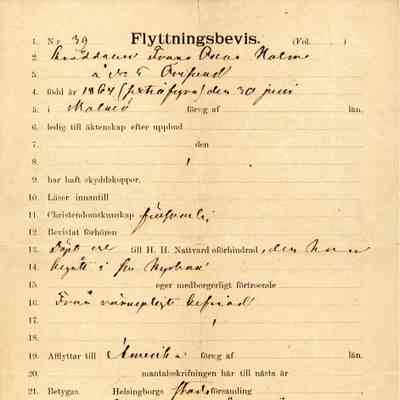 1. Nr 39 Flyttningsbevis. (Fol. )
2. Skräddaren Frans Oscar Holm
3. å No 5
4. född år 1864 (sextiofyra) den 30 juni
5. i Malmö föreg af län.
6. ledig till äktenskap efter uppbud
7. den
8.
9. har haft skyddskoppor,
10. Läser innantill
11. Christendomskunskap
12. Bevistat förhören
13. Döpt till H. H. Nattvard oförhindrad, den han
14. begått i sin
15. eger medborgerligt förtroende
16. Från värnepligt befriad
17.
18.
19. Afflyttar till Amerika föreg af län.
20. mantalsskrifningen här till nästa år
21. Betygas. Helsingborgs stadsförsamling